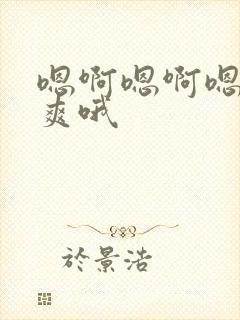 嗯啊嗯啊嗯
爽哦
於景浩